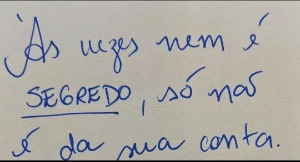 Às vezes nem é
SEGREDO, só não
é da sua conta.